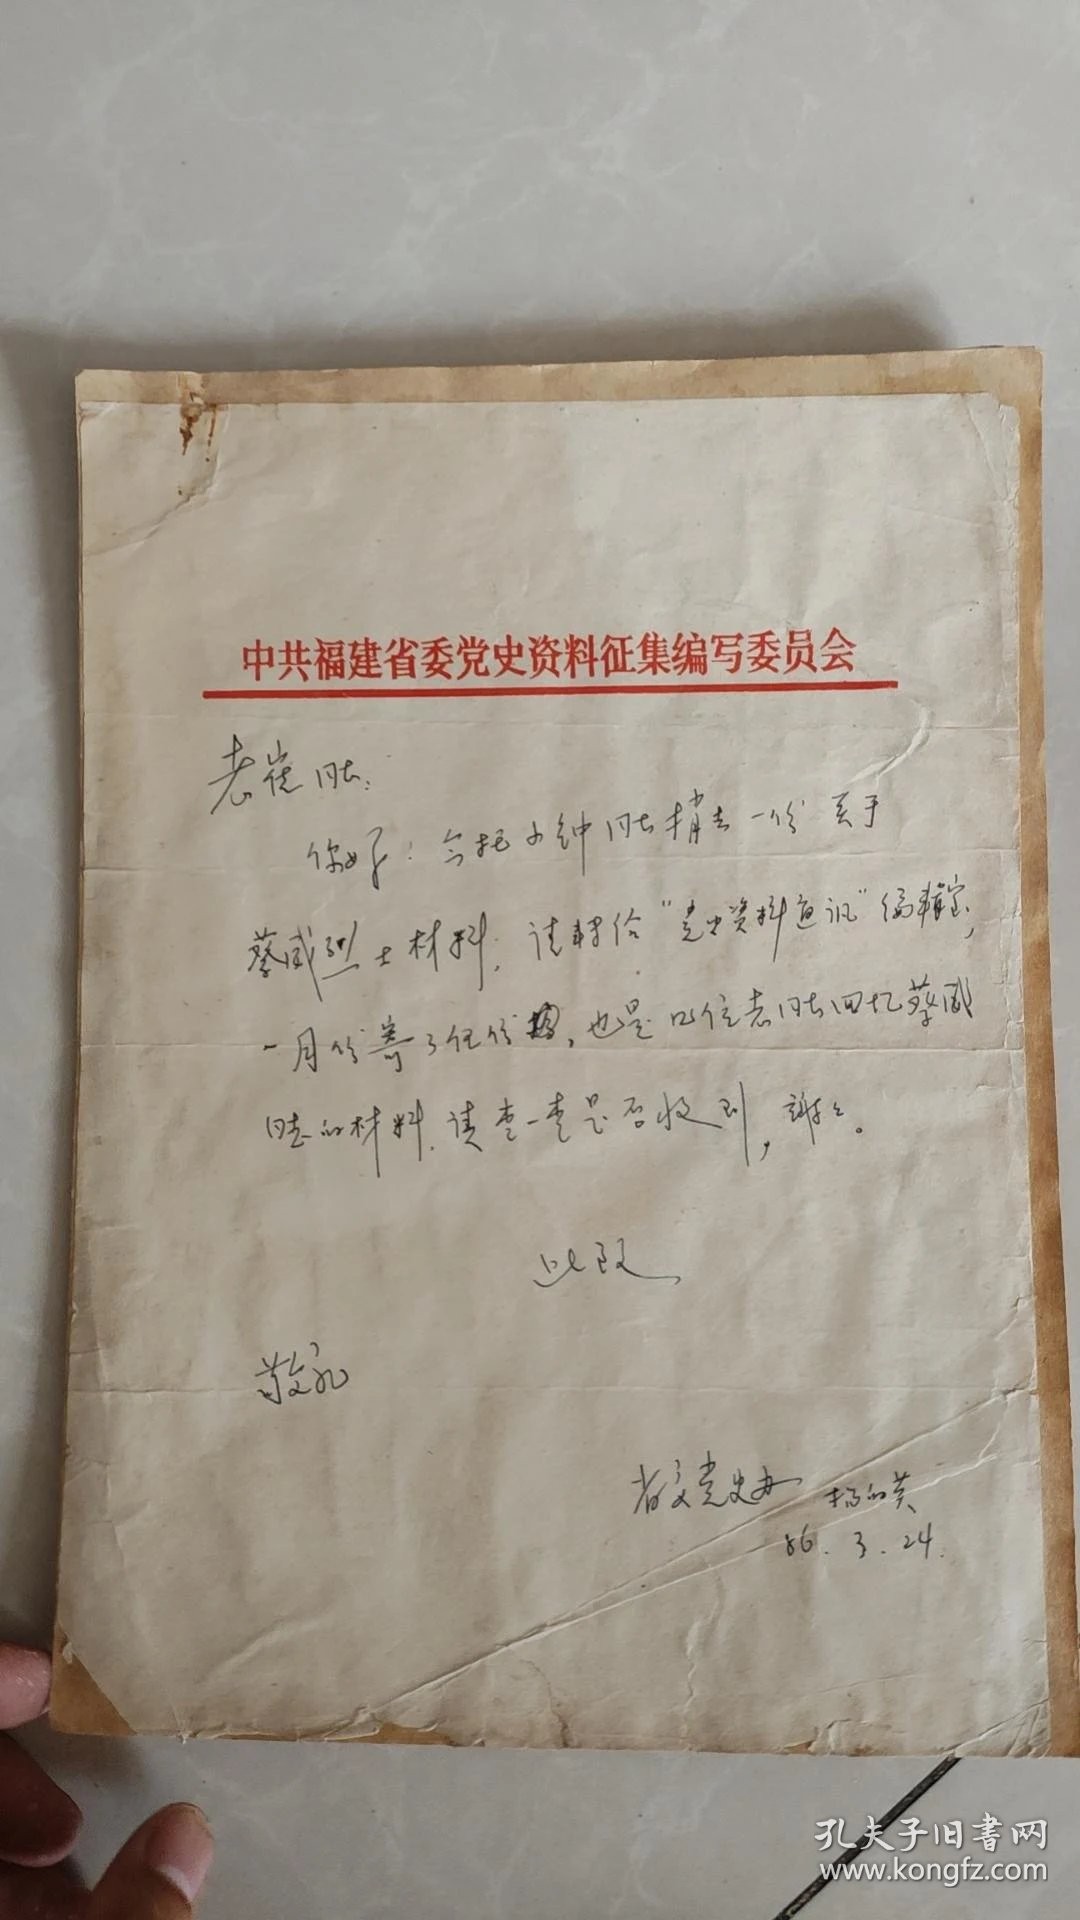 中共福建省委党史资料征集编写委员会
老崔同志:
你好!今托小钟同志捎去一份关于
蔡威烈士材料,请转给"党史资料通讯"编辑室,
一月份寄了任份,也是几位老同志回忆蔡威
同志的材料,请查一查是否收到,谢谢。
此致
敬礼
省委党史办 杨的英
86.3.24.
孔夫子旧書网
www.kongfz.com